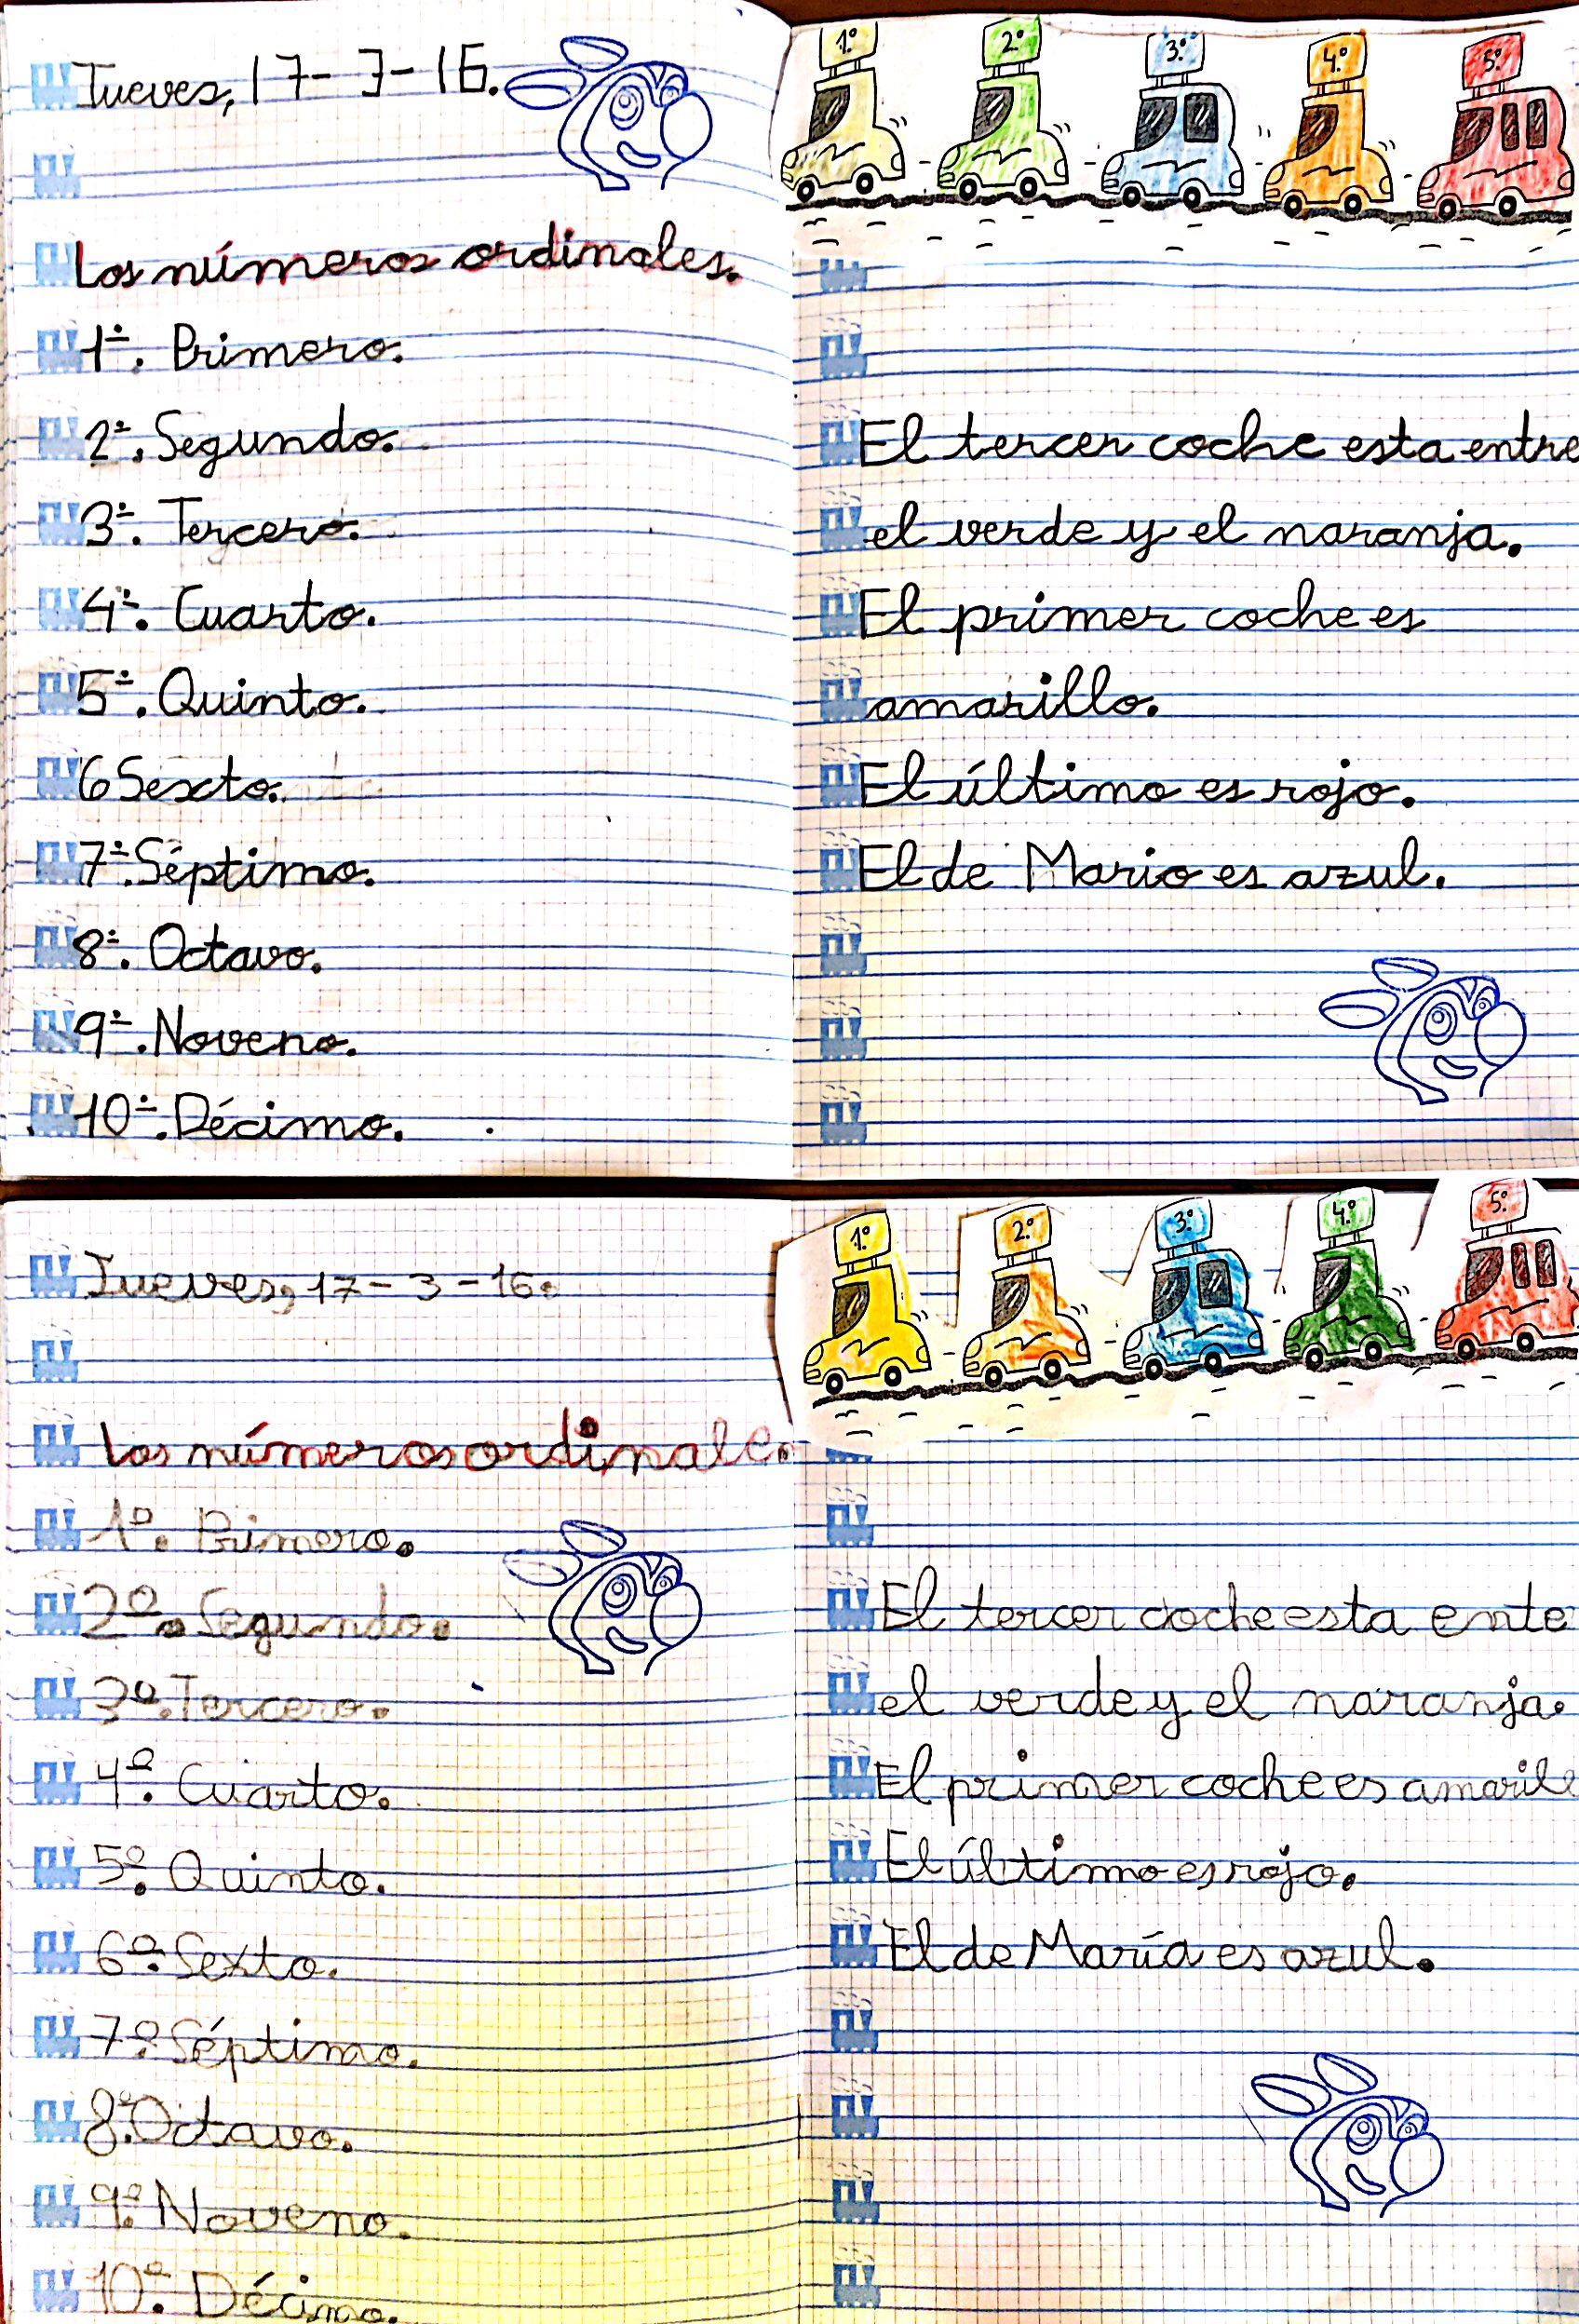 Jueves, 17-3-16.
Los números ordinales.
1º. Primero.
2º. Segundo.
3º. Tercero.
4º. Cuarto.
5º. Quinto.
6 Sexto.
7º. Séptimo.
8º. Octavo.
9º. Noveno.
10º. Décimo.
1º 2º 3º 4º 5º
El tercer coche esta entre
el verde y el naranja.
El primer coche es
amarillo.
El último es rojo.
El de Mario es azul.
Jueves, 17-3-16.
Los números ordinales.
1º. Primero.
2º. Segundo.
3º. Tercero.
4º. Cuarto.
5º. Quinto.
6º. Sexto.
7º. Séptimo.
8º. Octavo.
9º. Noveno.
10º. Décimo.
1º 2º 3º 4º 5º
El tercer coche esta ente
el verde y el naranja.
El primer coche es amarill
El último es rojo.
El de María es azul.